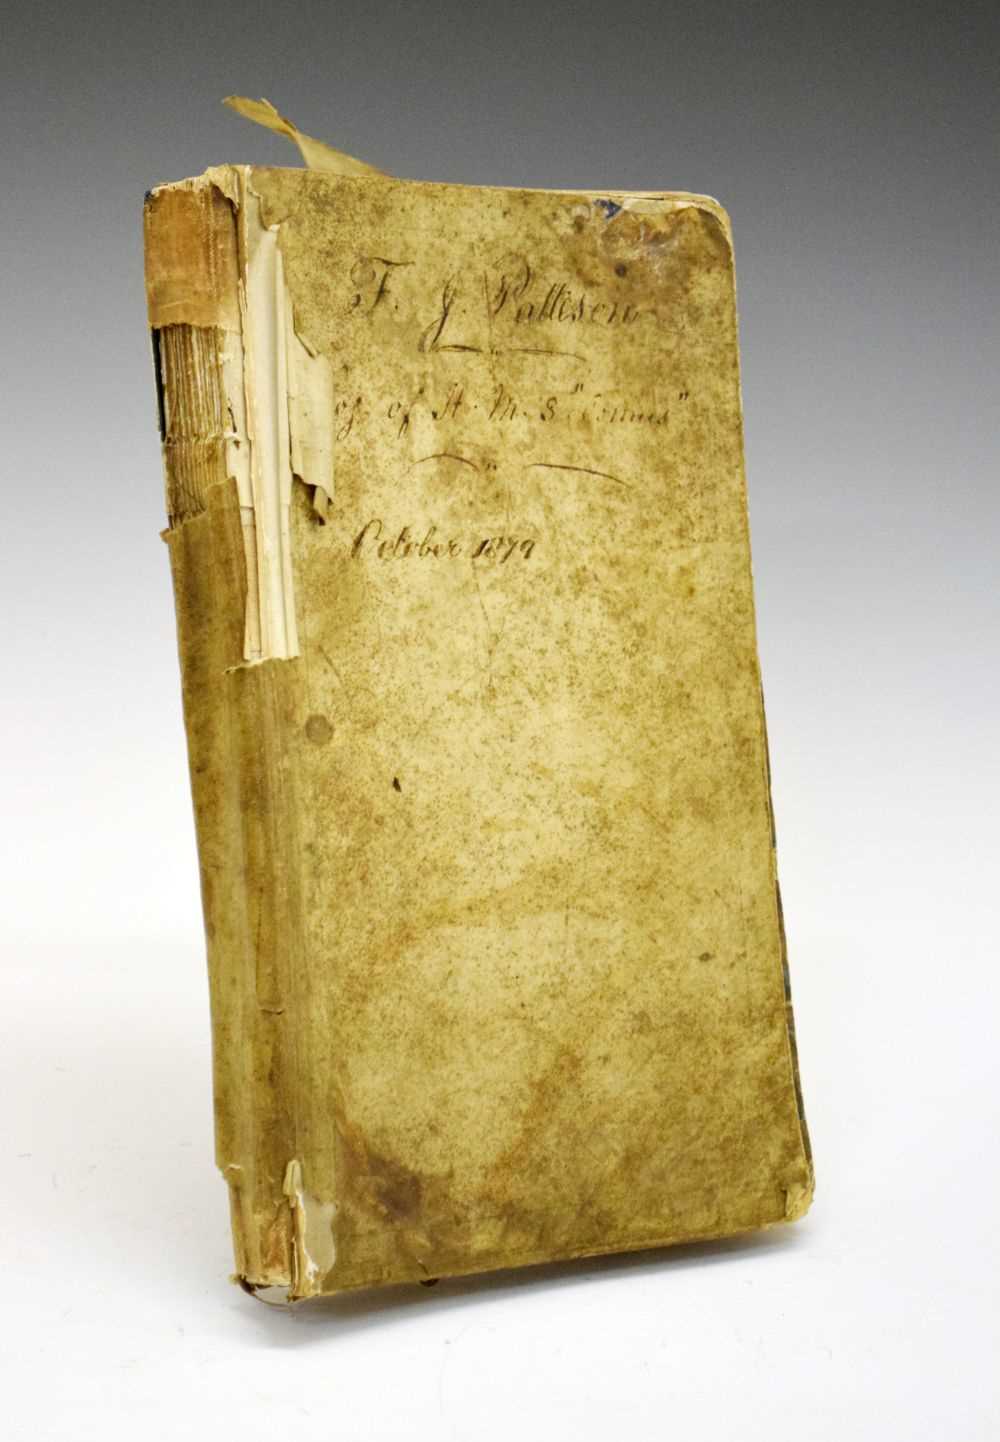 F. J. Patteson
of H.M.S "Comus"
October 1879